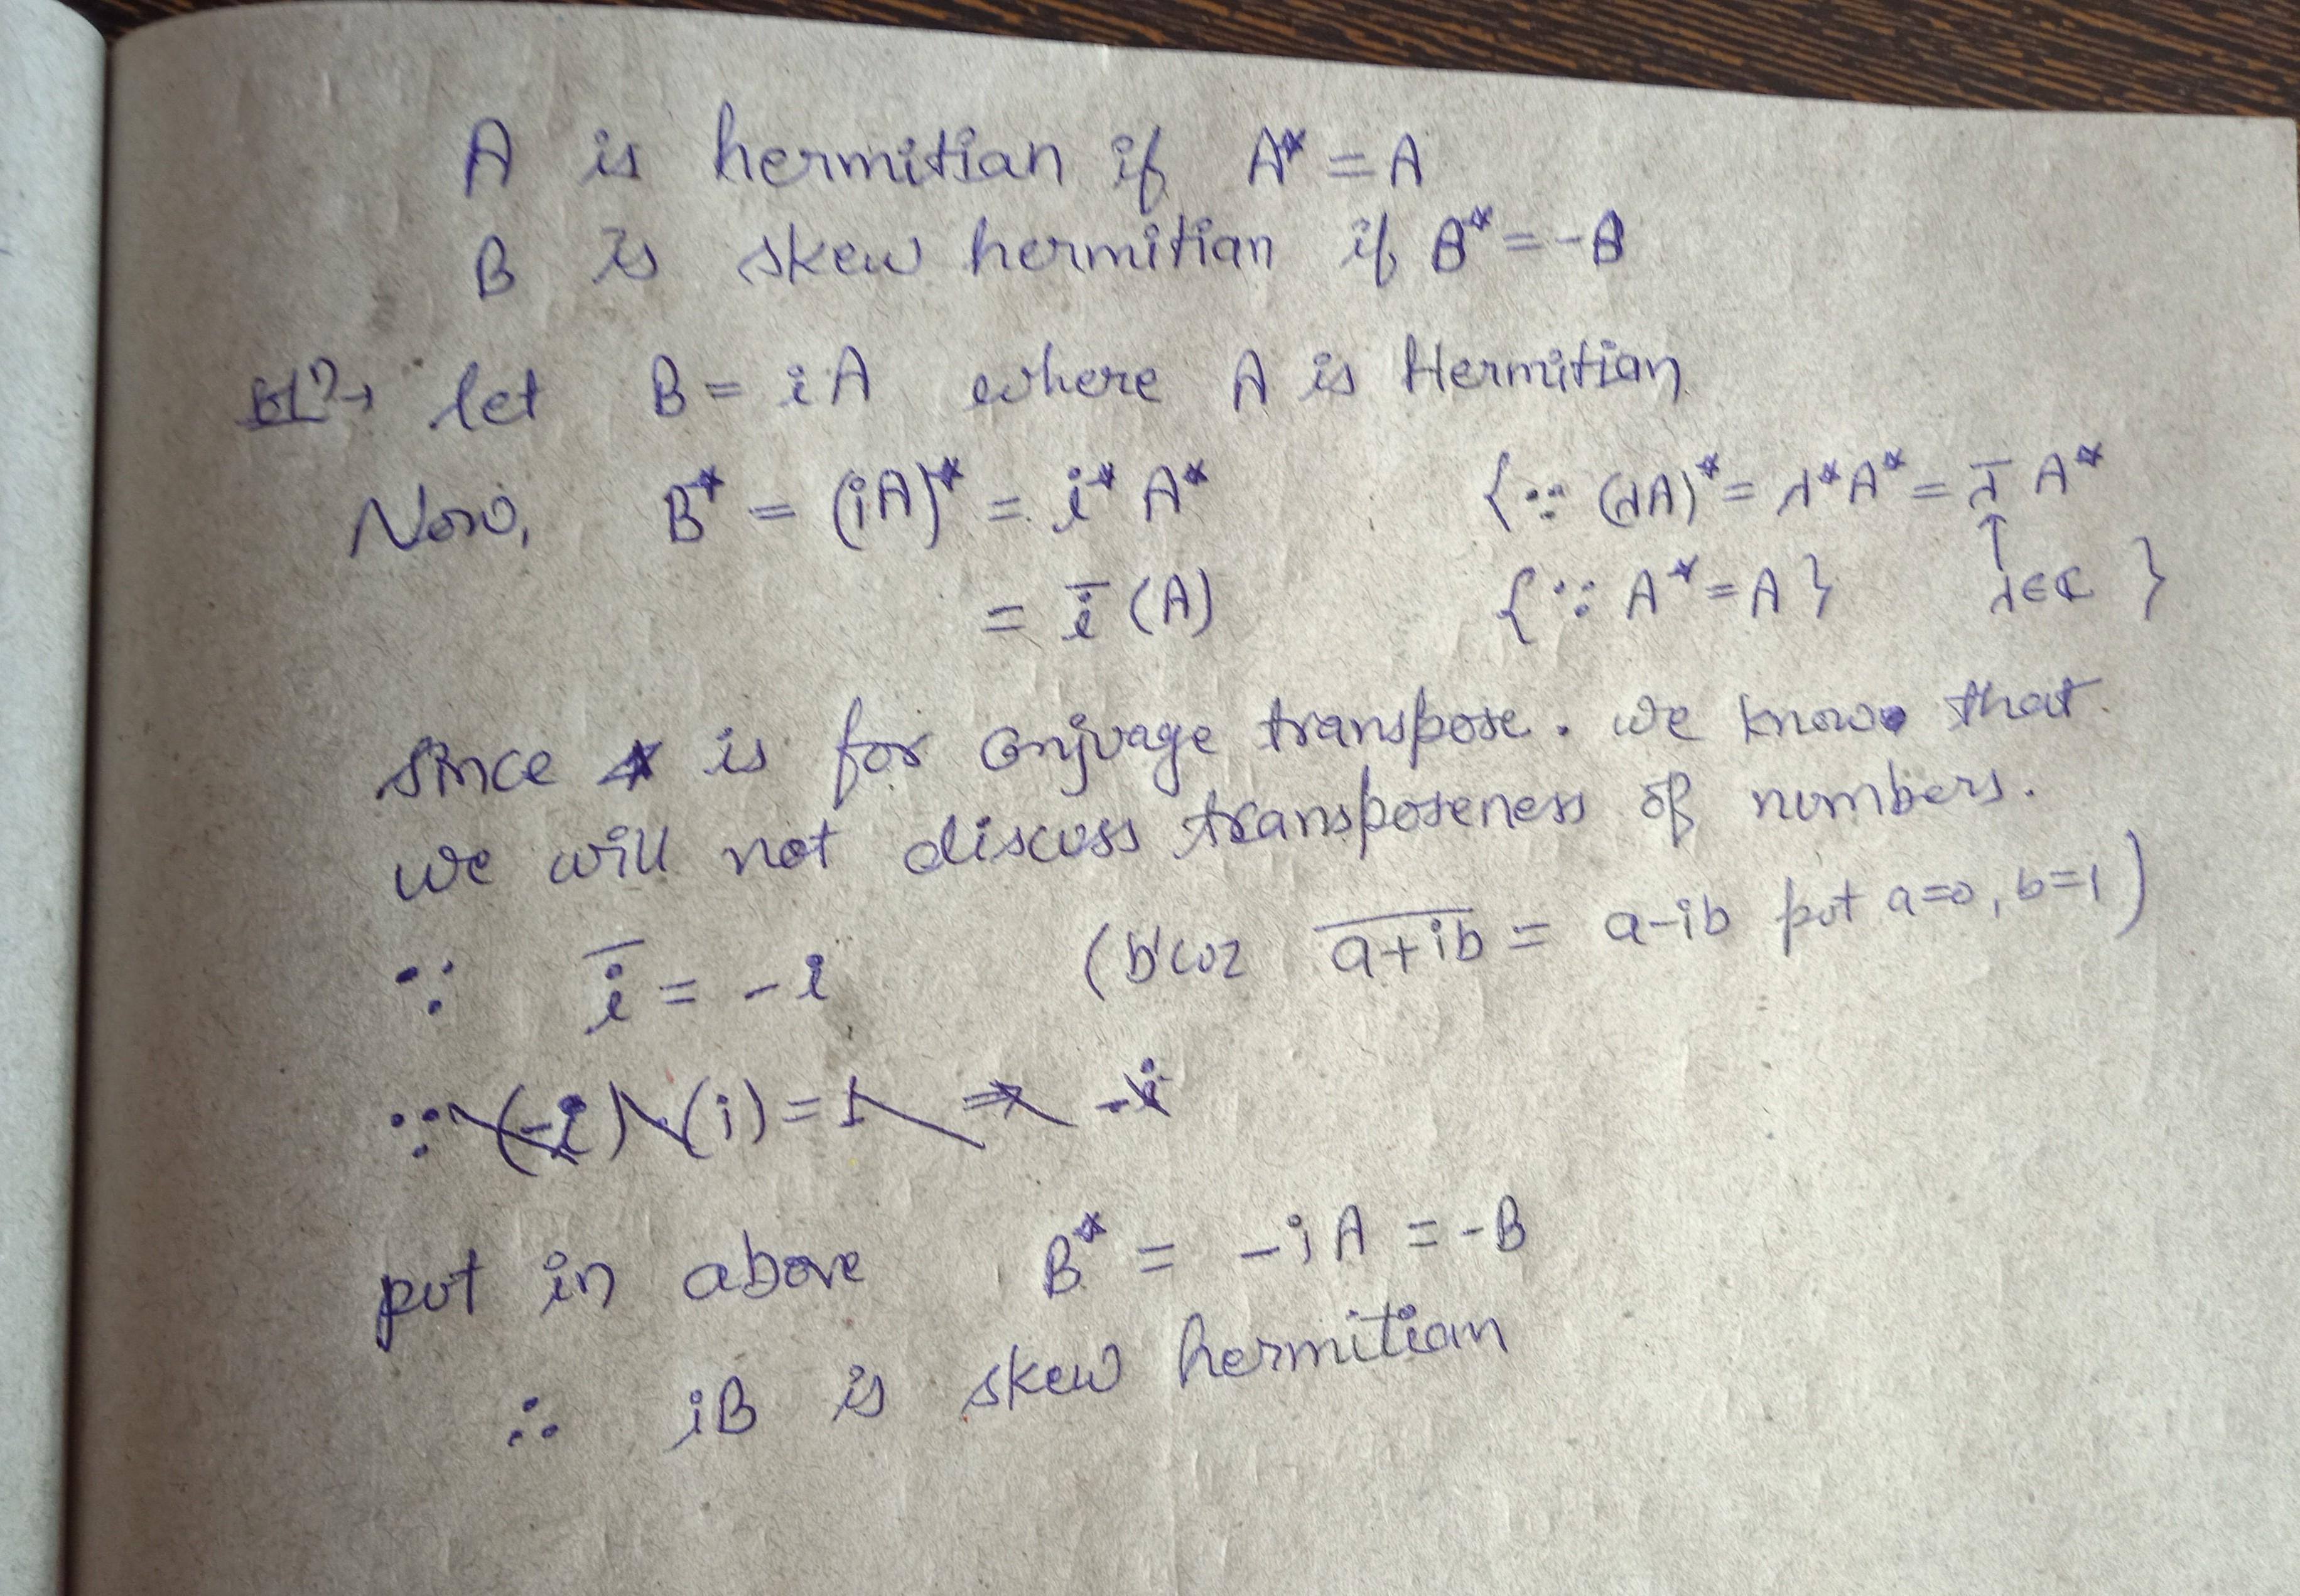 A is hermitian if A* = A
B is skew hermitian if B* = -B
Sol^n → let B = iA where A is Hermitian
Now, B* = (iA)* = i* A* {∵ (λA)* = λ*A* = λ̅ A*
= i̅ (A) {∵ A* = A} ↑ λ∈ℂ }
Since * is for Conjuage transpose. we know that
we will not discuss transposeness of numbers.
∵ i̅ = -i (b'coz \overline{a+ib} = a-ib put a=0, b=1)
∵ (-i) (i) = 1 ⇒ -i
put in above B* = -iA = -B
∴ iB is skew hermitian